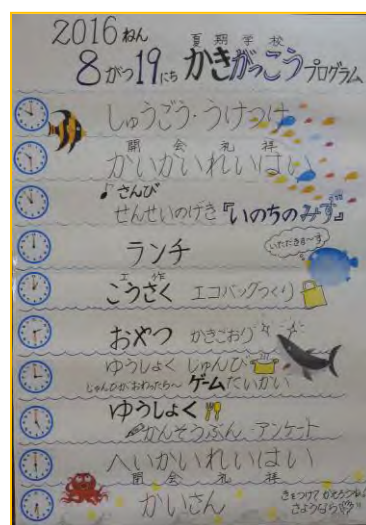 2016ねん
夏期学校
8がつ19にち かきがっこうプログラム
しゅうごう・うけつけ
開会礼拝
かいかいれいはい
♪さんび
せんせいのげき『いのちのみず』
ランチ
いただきま〜す
工作
こうさく エコバッグつくり
おやつ かきごおり
ゆうしょく じゅんび
じゅんびがおわったら〜 ゲームたいかい
ゆうしょく
かんそうぶん・アンケート
へいかいれいはい
かいさん
きをつけてかえろうね
さようなら